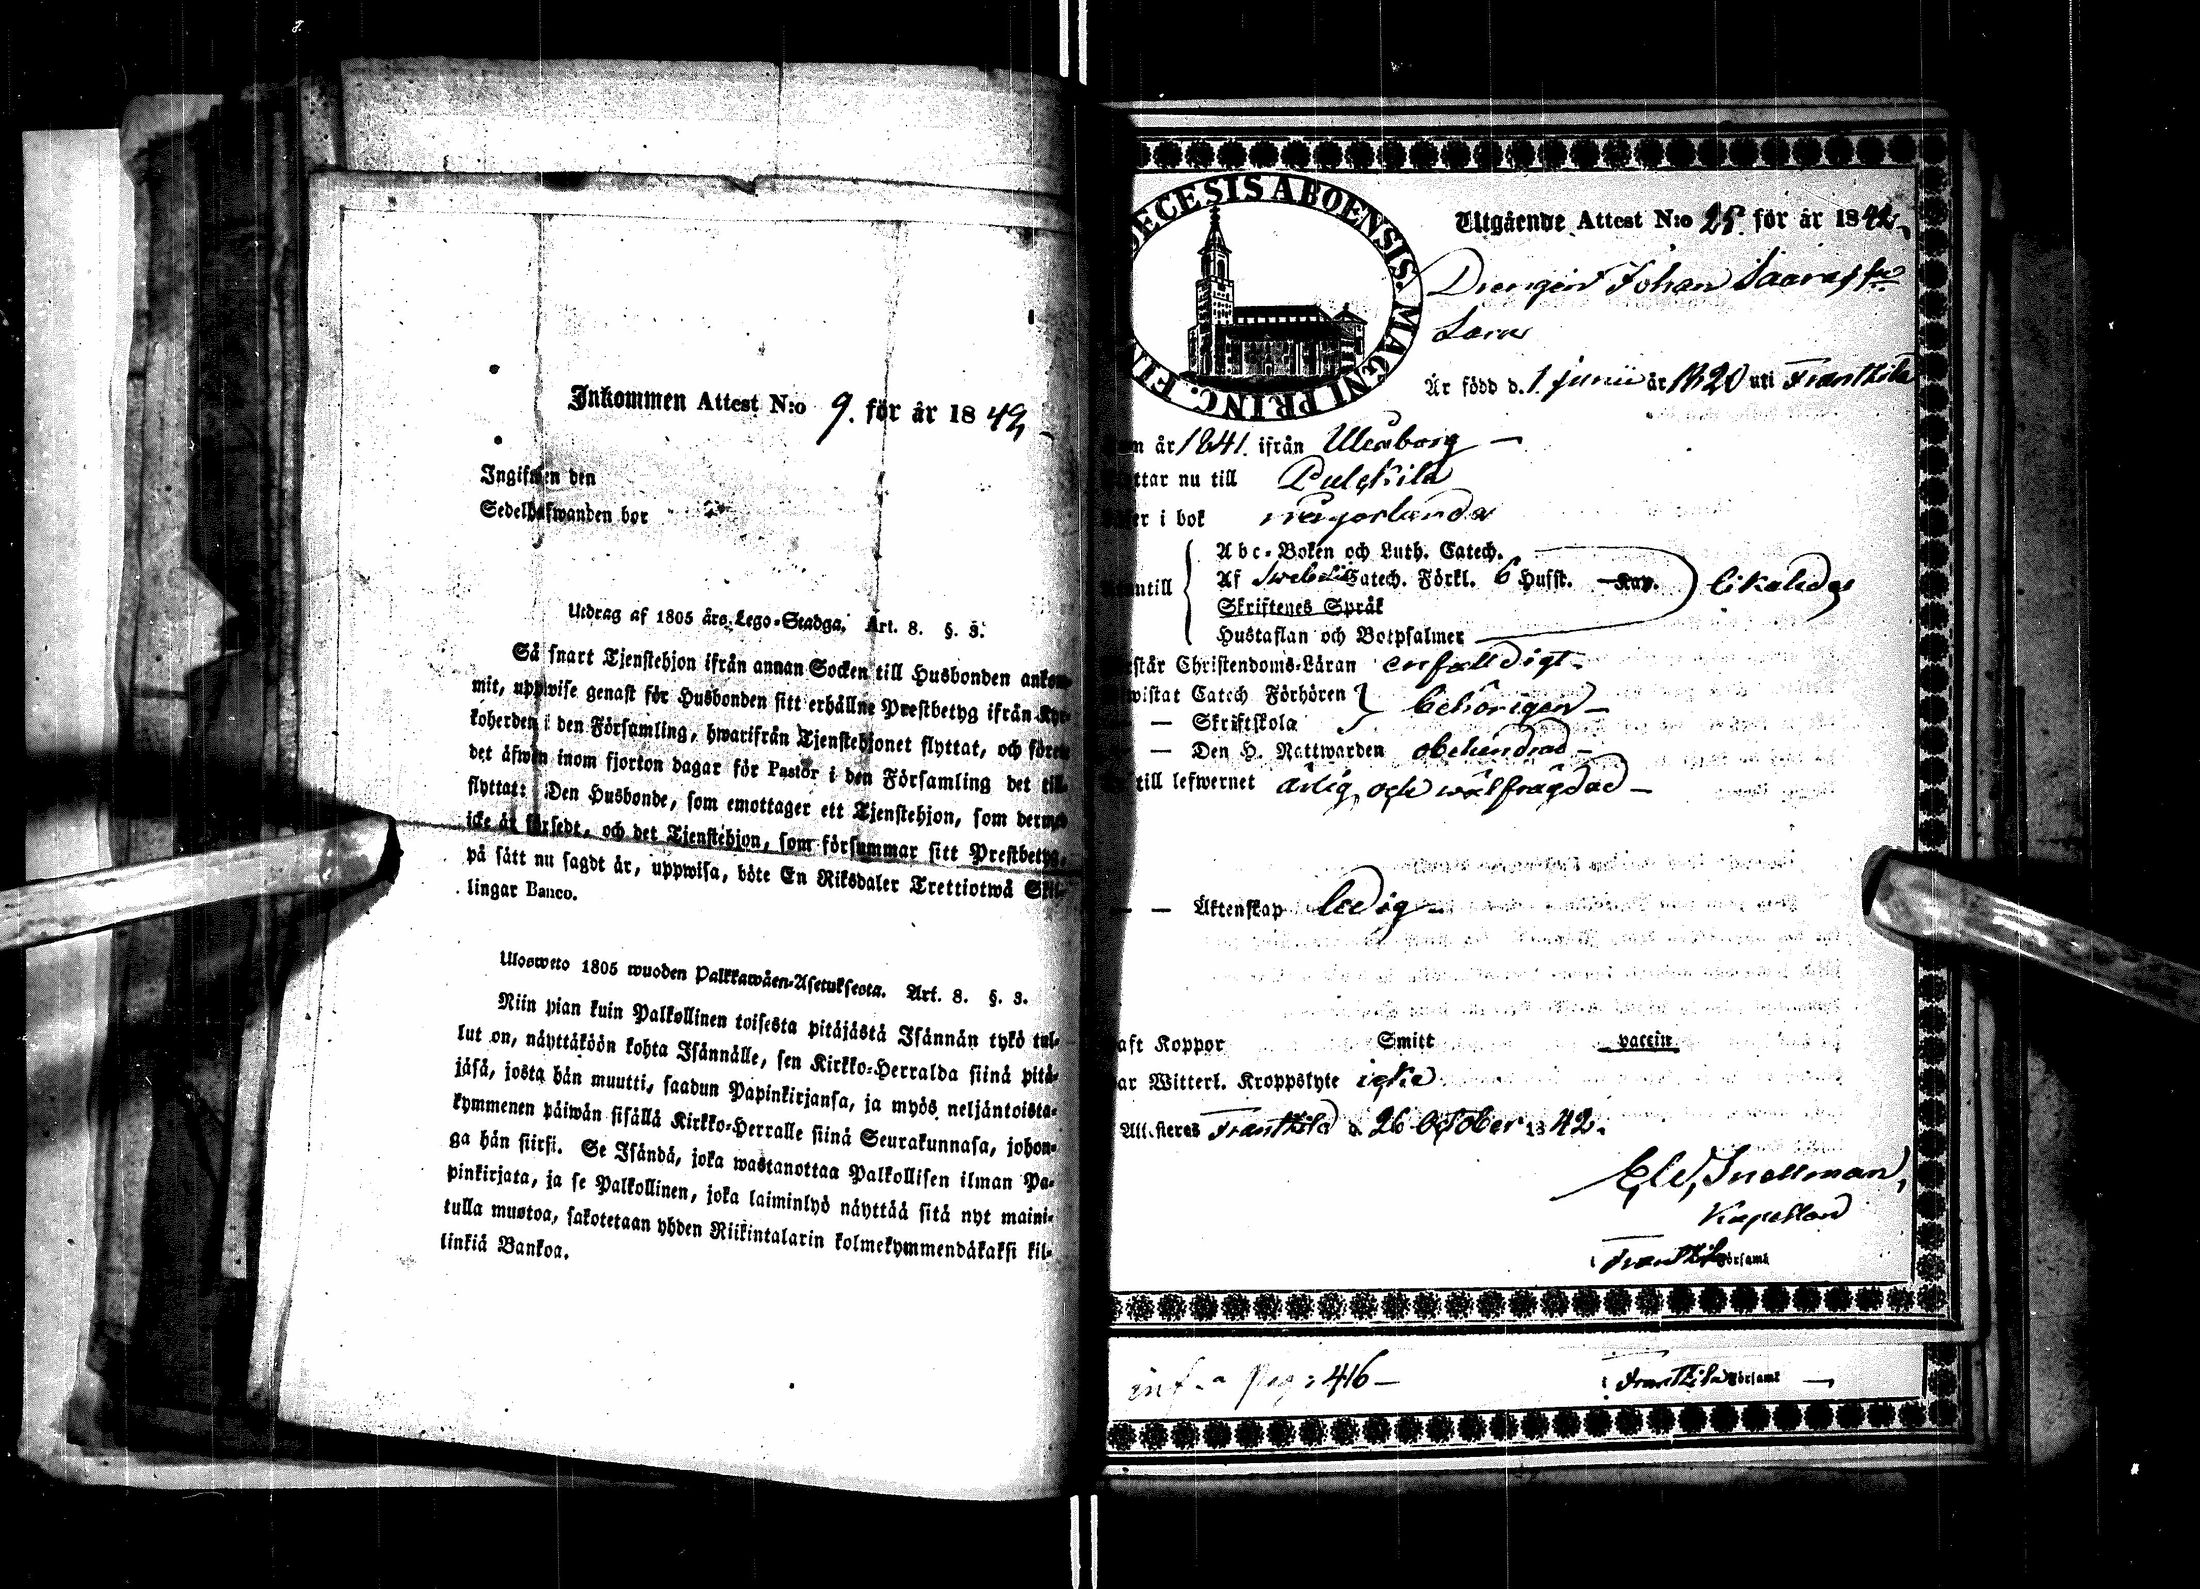 Inkommen Attest N:o 9. för år 1849,
Ingifwen den
Sedelhafwanden bor
Utdrag af 1805 års Lego-Stadga, Art. 8. §. 3.
Så snart Tjenstehjon ifrån annan Socken till Husbonden ankom-
mit, uppwise genast för Husbonden sitt erhållne Prestbetyg ifrån Kyr-
koherden i den Församling, hwarifrån Tjenstehjonet flyttat, och förete
det äfwen inom fjorton dagar för Pastor i den Församling det till-
flyttat: Den Husbonde, som emottager ett Tjenstehjon, som dermed
icke är försedt, och det Tjenstehjon, som försummar sitt Prestbetyg,
på sätt nu sagdt är, uppwisa, böte En Riksdaler Trettiotwå Skil-
lingar Banco.
Ulosweto 1805 wuoden Palkkawäen-Asetuksesta. Art. 8. §. 3.
Niin pian kuin Palkollinen toisesta pitäjästä Isännän tykö tul-
lut on, näyttäköön kohta Isännälle, sen Kirkko-Herralda siinä pitä-
jäsä, josta hän muutti, saadun Papinkirjansa, ja myös neljäntoista-
kymmenen päiwän sisällä Kirkko-Herralle siinä Seurakunnasa, johon-
ga hän siirsi. Se Isändä, joka wastanottaa Palkollisen ilman Pa-
pinkirjata, ja se Palkollinen, joka laiminlyö näyttää sitä nyt maini-
tulla muotoa, sakotetaan yhden Riikintalarin kolmekymmendäkaksi kil-
linkiä Bankoa.
DECESIS ABOENSIS. MAGNI PRINC. FIN
Utgående Attest N:o 25. för år 1842,
Drengen Johan Saarasson
Lara
Är född d. 1. junii år 1820 uti Frantzila
om år 1841. ifrån Uleåborg —
ttar nu till Pulkkila
ser i bok
Abc-Boken och Luth. Catech.
Af Swebelii Catech. Förkl. 6 Hufst. — Kap. likaledes
ntill
Skriftenes Språk
Hustaflan och Botpsalmer
rstår Christendoms-Läran enfaldigt.
wistat Catech Förhören behörigen —
— Skriftskola
— Den H. Nattwarden obehindrad —
till lefwernet ärlig och wälfrägdad —
— — Äktenskap ledig —
aft Koppor Smitt vaccin
ar Witterl. Kroppslyte icke
Attesteras Frantzila d. 26 October 1842.
E. W. Snellman,
Kapellan
i Frantzila Församl
inf. a pag: 416 —
i Frantzila Församl —